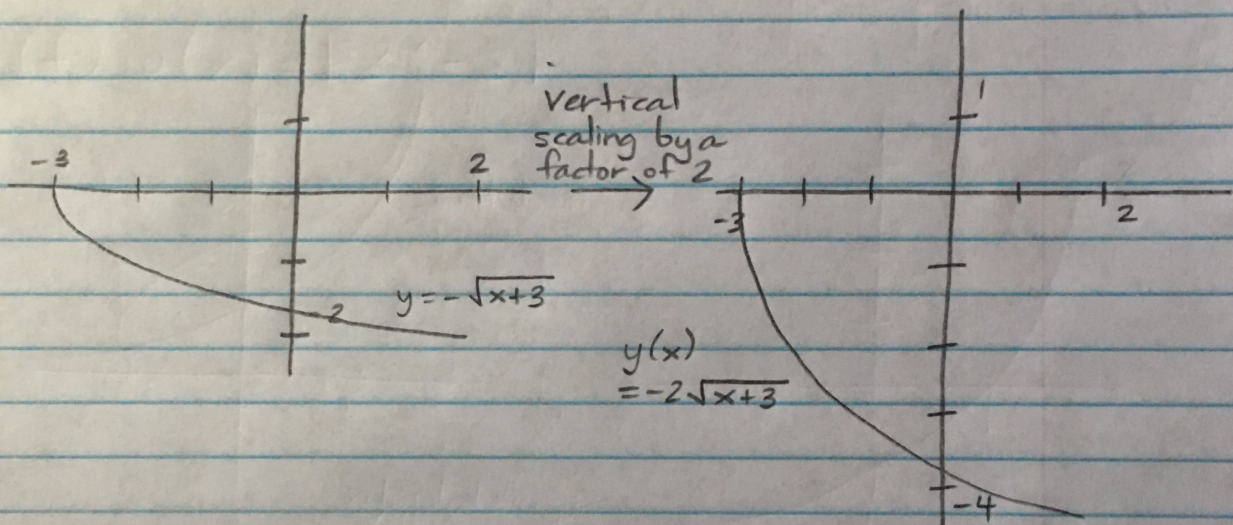 -3
2
y=-√x+3
-2
vertical
scaling by a
factor of 2
1
-3
2
y(x)
=-2√x+3
-4